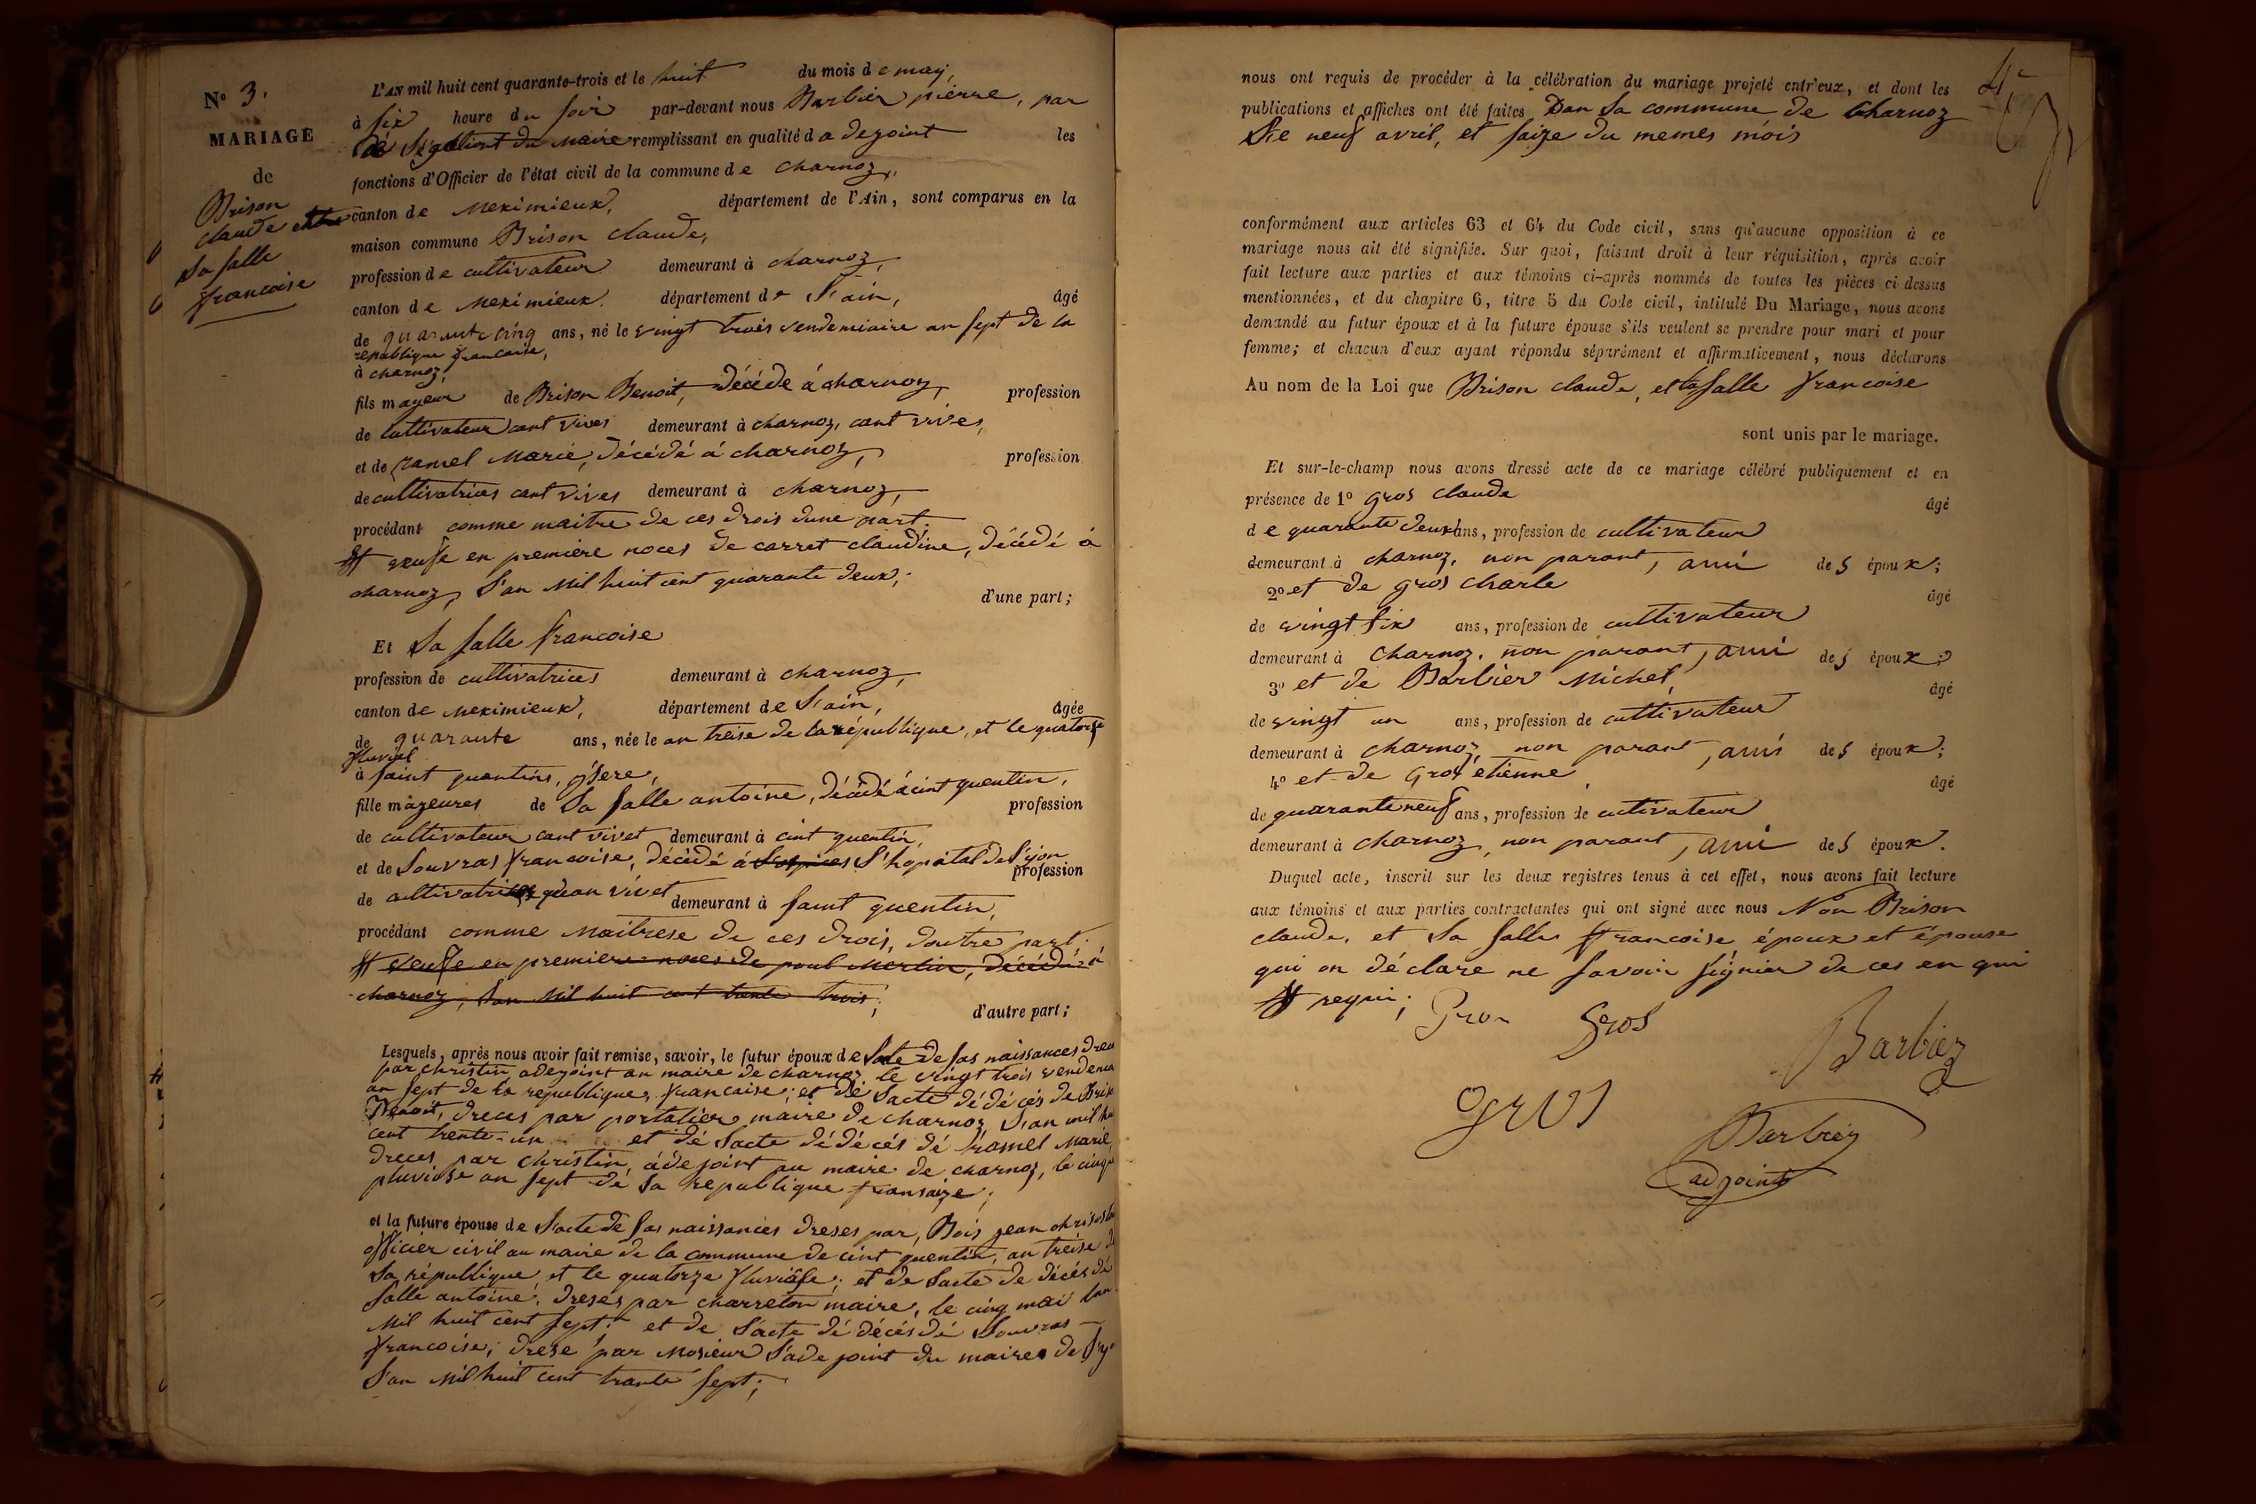 N° 3.
MARIAGE
de
Brison
claude et
La Salle
francoise
L'AN mil huit cent quarante-trois et le huit du mois de may,
à six heure du soir par-devant nous Barbier pierre, par
du Maire remplissant en qualité d adegoint les
fonctions d'Officier de l'état civil de la commune de charnoz,
canton de Meximieux, département de l'Ain, sont comparus en la
maison commune Brison claude,
profession de cultivateur demeurant à charnoz,
canton de Meximieux. département de l'ain, âgé
de quarante cinq ans, né le vingt trois vendemiaire an sept de la
republique francaise,
à charnoz,
fils mageur de Brison Benoit, décédé á charnoz, profession
de cultivateur cant vives demeurant à charnoz, cant vives,
et de ramel Marie, décédé á charnoz, profession
de cultivatrices cant vives demeurant à charnoz,
procédant comme maitre de ces drois dune part.
en premiere noces de carret claudine, décédé á
charnoz, l'an Mil huit cent quarante deux;
d'une part;
Et La Salle francoise
profession de cultivatrices demeurant à charnoz,
canton de Meximieux, département de l'ain, âgée
de quarante ans, née le an treise de la république, et le quatorse
fluvial
à saint quentins, isere,
fille mageures de La Salle antoine, décédé á cint quentin, profession
de cultivateur cant vivet demeurant à cint quentin,
et de Souvras francoise, décédé á Lospices l'hopital de Lyon profession
de cultivatrices quan vivet demeurant à saint quentin,
procédant comme Maitrese de ces drois, doutre part.
veufe en premiere noces de poul Merlin, décédé á
charnoz, l'an Mil huit cent trente trois;
d'autre part;
Lesques, après nous avoir fait remise, savoir, le futur époux de lacte de sas naissances drece
par christin adegoint au maire de charnoz le vingt trois vendemia
an sept de la republiques francaise; et dé lacte dé décés de Bris
Benoit, dreces par portalier maire de charnoz l'an mil hui
cent trente-un et dé lacte dé décés dé ramel Marie,
dreces par christin, ádejoint au maire de charnoz, le cinq
pluviose an sept dé la republique fransaize;
et la future épouse de lacte de sas naissances dreses par, Bois jean chrisos
officier civil au maire de la commune de cint quentin, an treise de
la république et le quatorze fluviôse; et de lacte de décés de
salle antoine, dreses par charreton maire, le cinq mai l'an
Mil huit cent sept; et de lacte dé décés dé Souvras
francoise; drese par Mosieur l'ade joint du maires de Ly
l'an Mil huit cent trante sept;
nous ont requis de procéder à la célébration du mariage projeté entr'eux, et dont les
publications et affiches ont été faites Dan La commune de Charnoz
Lie neuf avril, et saize du memes mois
conformément aux articles 63 et 64 du Code civil, sans qu'aucune opposition à ce
mariage nous ait été signifiée. Sur quoi, faisant droit à leur réquisition, après avoir
fait lecture aux parties et aux témoins ci-après nommés de toutes les pièces ci dessus
mentionnées, et du chapitre 6, titre 5 du Code civil, intitulé Du Mariage, nous avons
demandé au futur époux et à la future épouse s'ils veulent se prendre pour mari et pour
femme; et chacun d'eux ayant répondu séparément et affirmativement, nous déclarons
Au nom de la Loi que Brison claude, et la Salle francoise
sont unis par le mariage.
Et sur-le-champ nous avons dressé acte de ce mariage célébré publiquement et en
présence de 1° gros claude âgé
de quarante deux ans, profession de cultivateur
demeurant à charnoz, non parant, ami des époux;
2° et de gros charle âgé
de vingt six ans, profession de cultivateur
demeurant à charnoz, non parant, ami des époux;
3° et de Barbier Michel, âgé
de vingt un ans, profession de cultivateur
demeurant à charnoz, non parant, ami des époux;
4° et de Gros etienne âgé
de quarante neuf ans, profession de cutivateur
demeurant à charnoz, non parant, ami des époux.
Duquel acte, inscrit sur les deux registres tenus à cet effet, nous avons fait lecture
aux témoins et aux parties contractantes qui ont signé avec nous Non Brison
claude, et La Salle francoise époux et épouse
qui on déclare ne savoir signier de ces en qui
requi;
Gros Gros
Barbier
gros
Barbier
adjoint